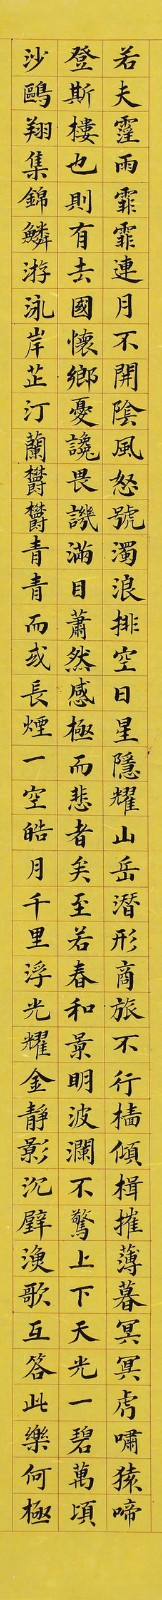 若夫霪雨霏霏連月不開陰風怒號濁浪排空日星隱耀山岳潛形商旅不行檣傾楫摧薄暮冥冥虎嘯猿啼
登斯樓也則有去國懷鄉憂讒畏譏滿目蕭然感極而悲者矣至若春和景明波瀾不驚上下天光一碧萬頃
沙鷗翔集錦鱗游泳岸芷汀蘭欝欝青青而或長煙一空皓月千里浮光耀金靜影沉璧漁歌互答此樂何極